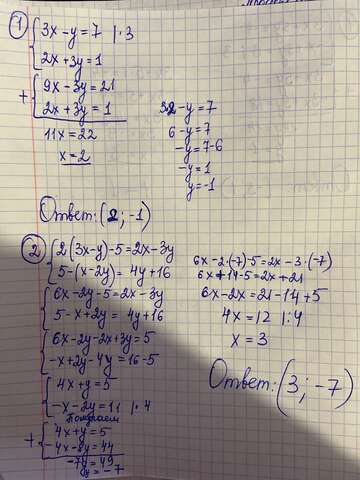 ① 3x-y=7 |·3
2x+3y=1
+ 9x-3y=21
2x+3y=1
11x=22
x=2
32-y=7
6-y=7
-y=7-6
-y=1
y=-1
Ответ: (2; -1)
② 2(3x-y)-5=2x-3y
5-(x-2y)=4y+16
6x-2y-5=2x-3y
5-x+2y=4y+16
6x-2y-2x+3y=5
-x+2y-4y=16-5
4x+y=5
-x-2y=11 |·4
Получаем
+ 4x+y=5
-4x-8y=44
-7y=49
y=-7
6x-2·(-7)-5=2x-3·(-7)
6x+14-5=2x+21
6x-2x=21-14+5
4x=12 |:4
x=3
Ответ: (3; -7)